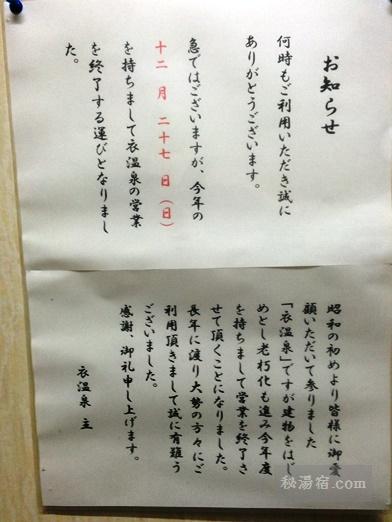 お知らせ
何時もご利用いただき誠に
ありがとうございます。
急ではございますが、今年の
十二月二十七日(日)
を持ちまして衣温泉の営業
を終了する運びとなりまし
た。
昭和の初めより皆様に御愛
顧いただいて参りました
「衣温泉」ですが建物をはじ
めとし老朽化も進み今年度
を持ちまして営業を終了さ
せて頂くことになりました。
長年に渡り大勢の方々にご
利用頂きまして誠に有難う
ございました。
感謝、御礼申し上げます。
衣温泉 主
秘湯宿.com